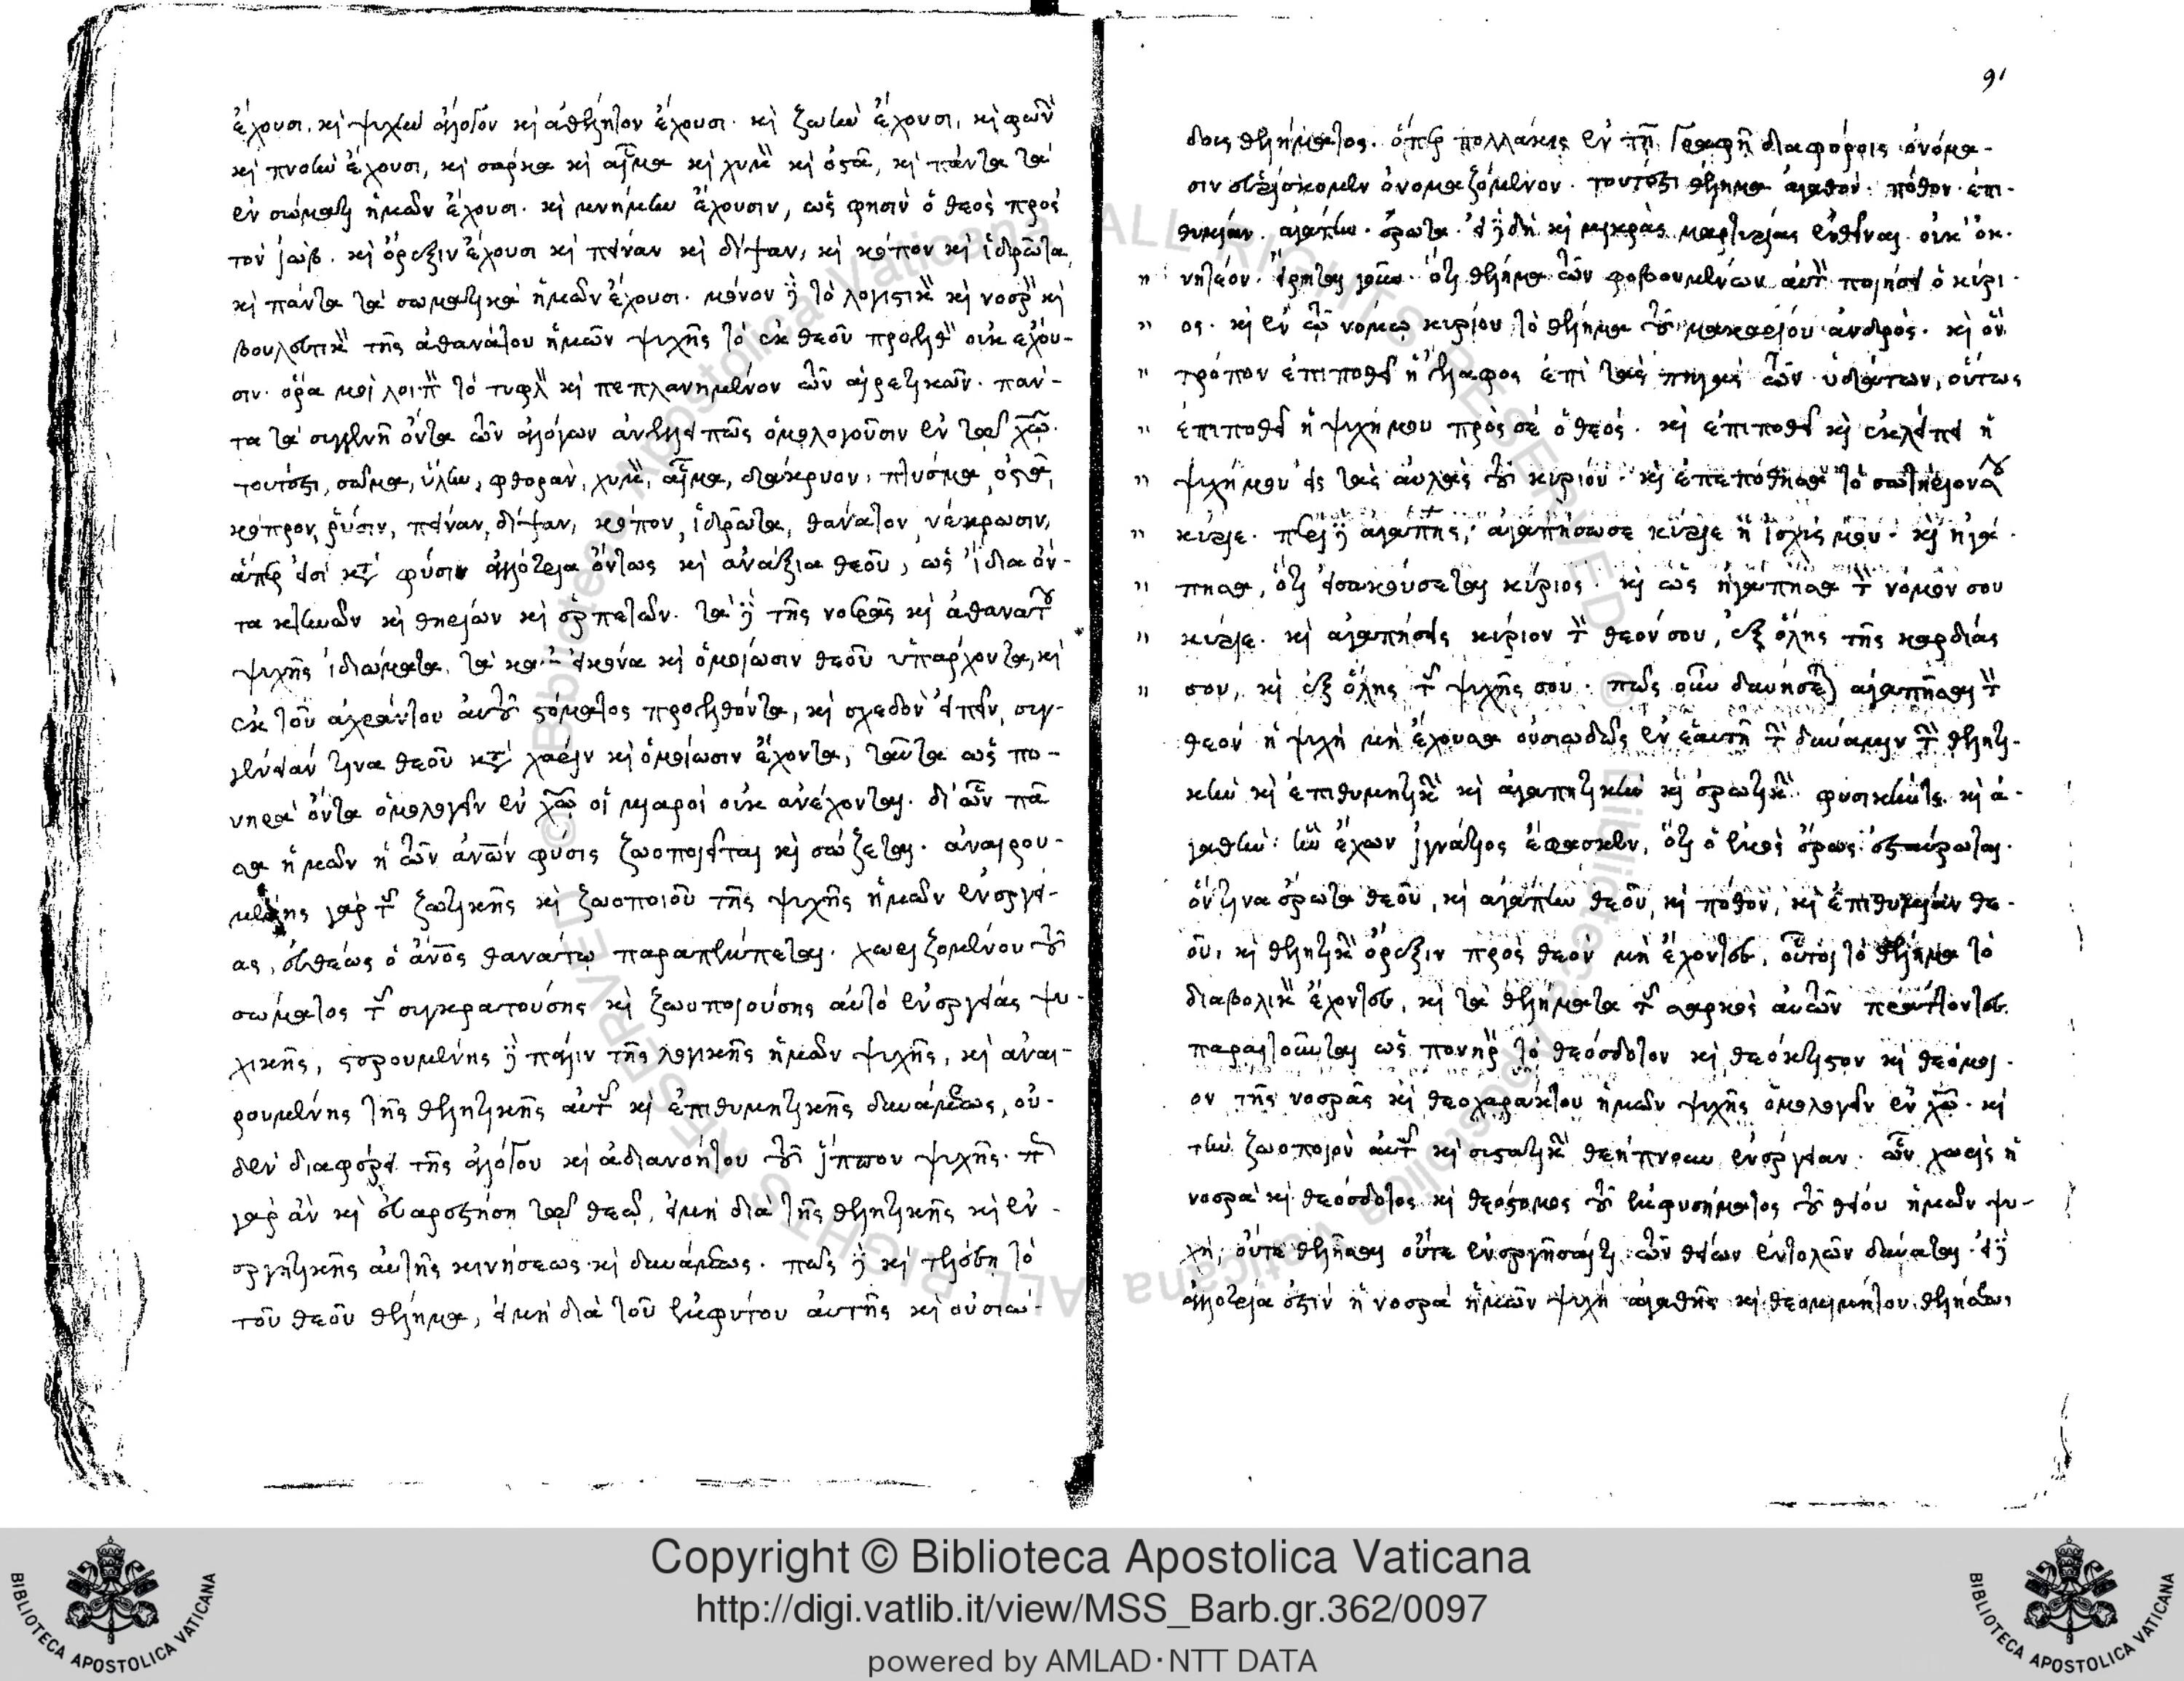 ἔχουσι. κὶ ψυχὴν ἄλογον κὶ ἀθέλητον ἔχουσι. κὶ ζωὴν ἔχουσι, κὶ φωνὴν
κὶ πνοὴν ἔχουσι, κὶ σάρκα κὶ αἷμα κὶ χυμὸν κὶ ὀστᾶ, κὶ πάντα τὰ
ἐν σώματι ἡμῶν ἔχουσι. κὶ μνήμην ἔχουσιν, ὥς φησιν ὁ θεὸς πρὸς
τὸν ἰώβ. κὶ ὄρεξιν ἔχουσι κὶ πεῖναν κὶ δίψαν, κὶ κόπον κὶ ἱδρῶτα,
κὶ πάντα τὰ σωματικὰ ἡμῶν ἔχουσι. μόνον δὲ τὸ λογιστικὸν κὶ νοερὸν κὶ
βουλευτικὸν τῆς ἀθανάτου ἡμῶν ψυχῆς τὸ ἐκ θεοῦ προελθὸν οὐκ ἔχου-
σιν. ὅρα μοι λοιπὸν τὸ τυφλὸν κὶ πεπλανημένον τῶν αἱρετικῶν. πάν-
τα τὰ συγγενῆ ὄντα τῶν ἀλόγων ἀνελλιπῶς ὁμολογοῦσιν ἐν τῷ χω̅.
τουτέστι, σῶμα, ὕλην, φθοράν, χυμὸν, αἷμα, δάκρυον, πτύσμα, ὀστᾶ,
κόπρον, ῥύσιν, πεῖναν, δίψαν, κόπον, ἱδρῶτα, θάνατον, νέκρωσιν,
ἅπερ εἰσὶ κατὰ φύσιν ἀλλότρια ὄντως κὶ ἀνάξια θεοῦ, ὡς ἴδια ὄν-
τα κτηνῶν κὶ θηρίων κὶ ἑρπετῶν. τὰ δὲ τῆς νοερᾶς κὶ ἀθανάτου
ψυχῆς ἰδιώματα, τὰ κατ' εἰκόνα κὶ ὁμοίωσιν θεοῦ ὑπάρχοντα, κὶ
ἐκ τοῦ ἀχράντου αὐτοῦ στόματος προελθόντα, κὶ σχεδὸν εἰπεῖν, συγ-
γένειάν τινα θεοῦ κατὰ χάριν κὶ ὁμοίωσιν ἔχοντα, ταῦτα ὡς πο-
νηρὰ ὄντα ὁμολογεῖν ἐν χω̅ οἱ μιαροὶ οὐκ ἀνέχονται. δι' ὧν πᾶ
σα ἡμῶν ἡ τῶν ἀν̅ων φύσις ζωοποιεῖται κὶ σώζεται. ἀναιρου-
μένης γὰρ τῆς ζωτικῆς κὶ ζωοποιοῦ τῆς ψυχῆς ἡμῶν ἐνεργεί-
ας, εὐθέως ὁ ἀν̅ος θανάτῳ παραπέμπεται. χωριζομένου τοῦ
σώματος τῆς συγκρατούσης κὶ ζωοποιούσης αὐτὸ ἐνεργείας ψυ-
χικῆς, στερουμένης δὲ πάλιν τῆς λογικῆς ἡμῶν ψυχῆς, κὶ ἀναι-
ρουμένης τῆς θελητικῆς αὐτῆς κὶ ἐπιθυμητικῆς δυνάμεως, οὐ-
δὲν διαφέρει τῆς ἀλόγου κὶ ἀδιανοήτου τοῦ ἵππου ψυχῆς. πῶς
γὰρ ἂν κὶ εὐαρεστήσῃ τῷ θεῷ, εἰ μὴ διὰ τῆς θελητικῆς κὶ ἐν-
εργητικῆς αὐτῆς κινήσεως κὶ δυνάμεως. πῶς δὲ κὶ τελέσῃ τὸ
τοῦ θεοῦ θέλημα, εἰ μὴ διὰ τοῦ ἐμφύτου αὐτῆς κὶ οὐσιώ-
91
δους θελήματος. ὅπερ πολλάκις ἐν τῇ γραφῇ διαφόροις ὀνόμα-
σιν εὑρίσκομεν ὀνομαζόμενον. τουτέστι θέλημα ἀγαθόν. πόθον. ἐπι-
θυμίαν. ἀγάπην. ἔρωτα. εἰ δὲ δεῖ κὶ μικρὰς μαρτυρίας ἐνθεῖναι. οὐκ ὀκ-
νητέον. εἴρηται γὰρ. ὅτι θέλημα τῶν φοβουμένων αὐτὸν ποιήσει ὁ κύρι-
ος. κὶ ἐν τῷ νόμῳ κυρίου τὸ θέλημα τοῦ μακαρίου ἀνδρός. κὶ ὃν
τρόπον ἐπιποθεῖ ἡ ἔλαφος ἐπὶ τὰς πηγὰς τῶν ὑδάτων, οὕτως
ἐπιποθεῖ ἡ ψυχή μου πρὸς σὲ ὁ θεός. κὶ ἐπιποθεῖ κὶ ἐκλείπει ἡ
ψυχή μου εἰς τὰς αὐλὰς τοῦ κυρίου. κὶ ἐπεπόθησα τὸ σωτήριόν σου
κύριε. περὶ δὲ ἀγάπης, ἀγαπήσω σε κύριε ἡ ἰσχύς μου. κὶ ἠγά-
πησα, ὅτι εἰσακούσεται κύριος. κὶ ὡς ἠγάπησα τὸν νόμον σου
κύριε. κὶ ἀγαπήσεις κύριον τὸν θεόν σου, ἐξ ὅλης τῆς καρδίας
σου, κὶ ἐξ ὅλης τῆς ψυχῆς σου. πῶς οὖν δυνήσεται ἀγαπῆσαι τὸν
θεὸν ἡ ψυχὴ μὴ ἔχουσα οὐσιωδῶς ἐν ἑαυτῇ τὴν δύναμιν τὴν θελητι-
κὴν κὶ ἐπιθυμητικὴν κὶ ἀγαπητικὴν κὶ ἐρωτικὴν φυσικήν τε κὶ ἀ-
γαθήν. ἣν ἔχων ἰγνάτιος ἔφασκεν, ὅτι ὁ ἐμὸς ἔρως ἐσταύρωται.
ὅντινα ἔρωτα θεοῦ, κὶ ἀγάπην θεοῦ, κὶ πόθον, κὶ ἐπιθυμίαν θε-
οῦ, κὶ θελητικὴν ὄρεξιν πρὸς θεὸν μὴ ἔχοντες, οὗτοι τὸ θέλημα τὸ
διαβολικὸν ἔχοντες, κὶ τὰ θελήματα τῆς σαρκὸς αὐτῶν πράττοντες
παραιτοῦνται ὡς πονηρὸν τὸ θεόσδοτον κὶ θεόκτιστον κὶ θεόμοι-
ον τῆς νοερᾶς κὶ θεοχαράκτου ἡμῶν ψυχῆς ὁμολογεῖν ἐν χω̅. κὶ
τὴν ζωοποιὸν αὐτῆς κὶ συστατικὴν θεήπνουν ἐνέργειαν. ὧν χωρὶς ἡ
νοερὰ κὶ θεόσδοτος κὶ θεόστομος τοῦ ἐμφυσήματος τοῦ θείου ἡμῶν ψυ-
χὴ, οὔτε θελῆσαι οὔτε ἐνεργῆσαί τι τῶν θείων ἐντολῶν δύναται. εἰ δὲ
ἀλλοτρία ἐστὶν ἡ νοερὰ ἡμῶν ψυχὴ ἀγαθῆς κὶ θεομιμήτου θελήσεως
Copyright © Biblioteca Apostolica Vaticana
http://digi.vatlib.it/view/MSS_Barb.gr.362/0097
powered by AMLAD·NTT DATA
BIBLIOTECA APOSTOLICA VATICANA
BIBLIOTECA APOSTOLICA VATICANA